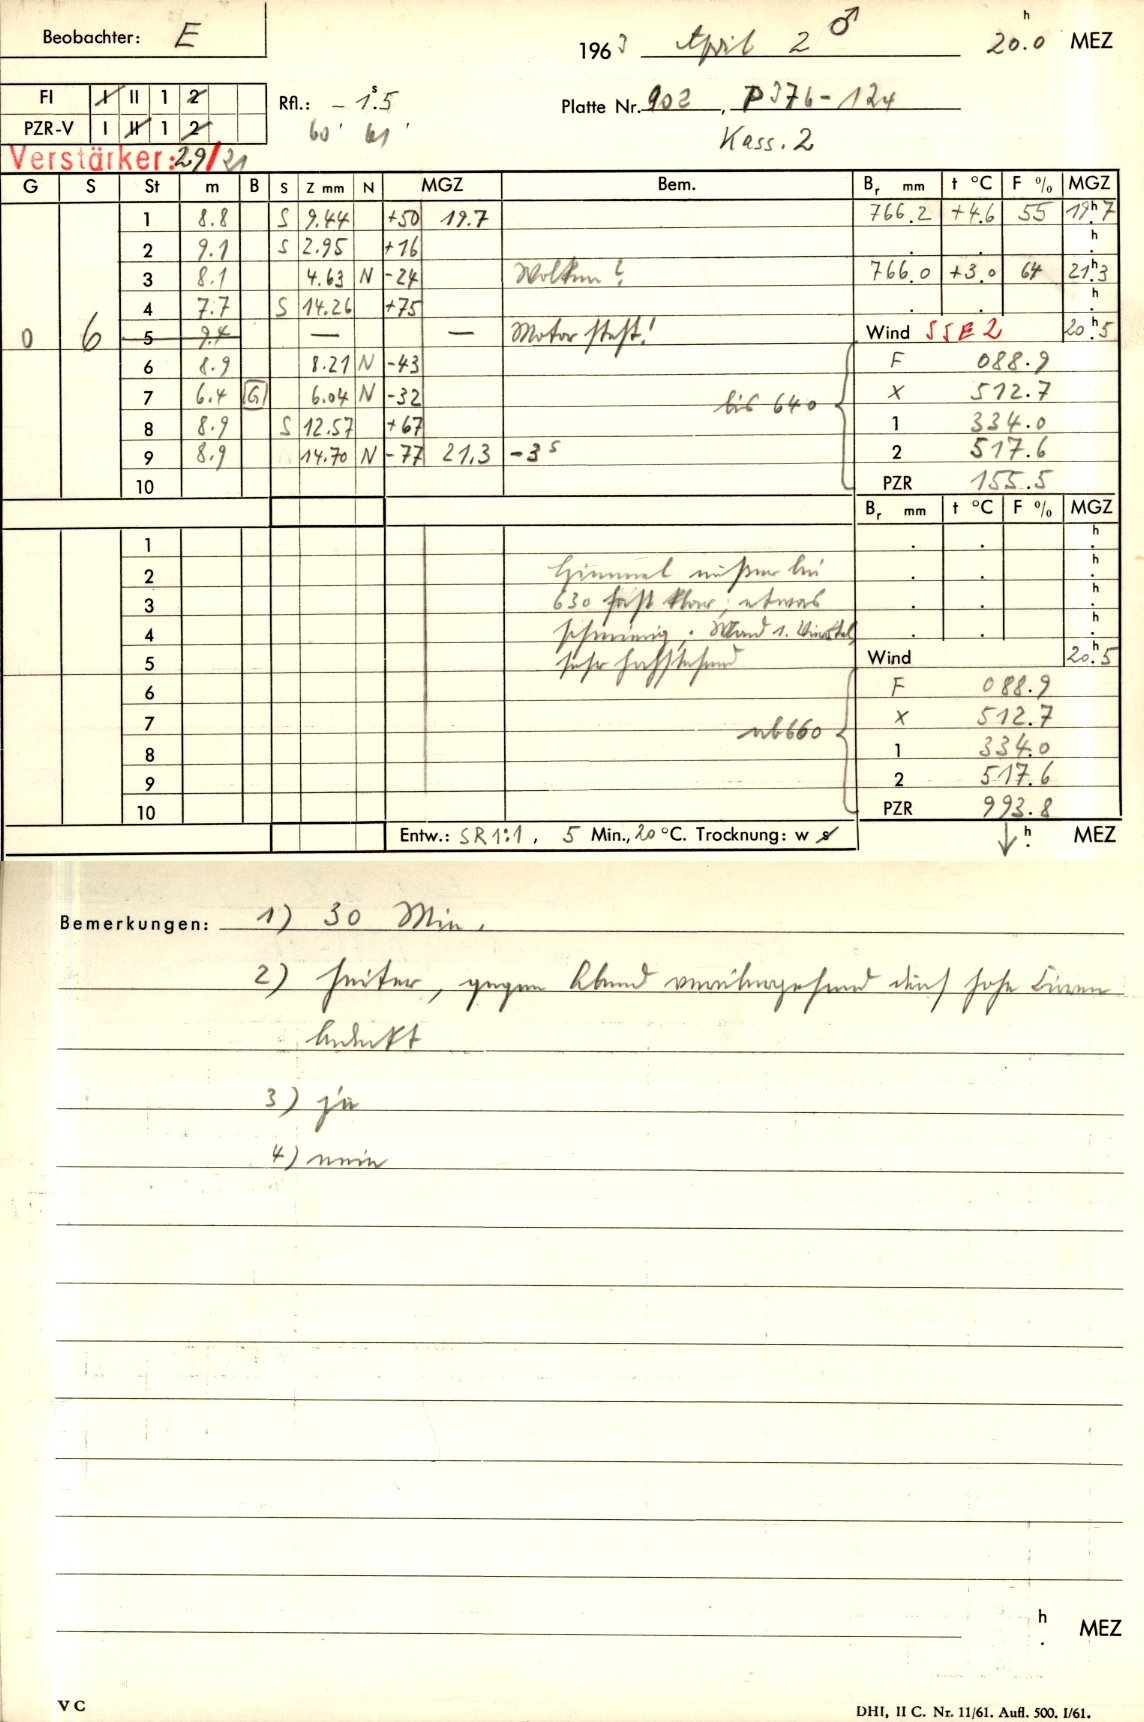 Beobachter: E
1963 April 2 ♂ 20.0 h MEZ
FI I II 1 2
PZR-V I II 1 2
Rfl.: - 1.5 s
60' 61'
Platte Nr. 902, P376-124
Kass. 2
Verstärker: 29/21
G S St m B S Z mm N MGZ Bem. Br mm t °C F % MGZ
1 8.8 S 9.44 +50 19.7 766.2 +4.6 55 19.7 h
2 9.1 S 2.95 +16 . . h .
3 8.1 4.63 N -24 Wolken? 766.0 +3.0 64 21.3 h
4 7.7 S 14.26 +75 . . h .
0 6 5 9.4 — — Motor steht! Wind SSE 2 20.5 h
6 8.9 8.21 N -43 F 088.9
7 6.4 G 6.04 N -32 bis 640 X 512.7
8 8.9 S 12.57 +67 1 334.0
9 8.9 14.70 N -77 21.3 -3 s 2 517.6
10 PZR 155.5
Br mm t °C F % MGZ
1 . . h .
2 Himmel außer bei . . h .
3 630 fast klar; etwas . . h .
4 schmierig. Mond 1. Viertel, . . h .
5 sehr hochstehend Wind 20.5 h
6 F 088.9
7 ab 660 X 512.7
8 1 334.0
9 2 517.6
10 PZR 993.8
Entw.: SR 1:1, 5 Min., 20 °C. Trocknung: w s ↓ h . MEZ
Bemerkungen: 1) 30 Min.
2) heiter, gegen Abend vorübergehend durch hohe Cirren
bedeckt
3) ja
4) nein
h . MEZ
V C
DHI, II C. Nr. 11/61. Aufl. 500. I/61.